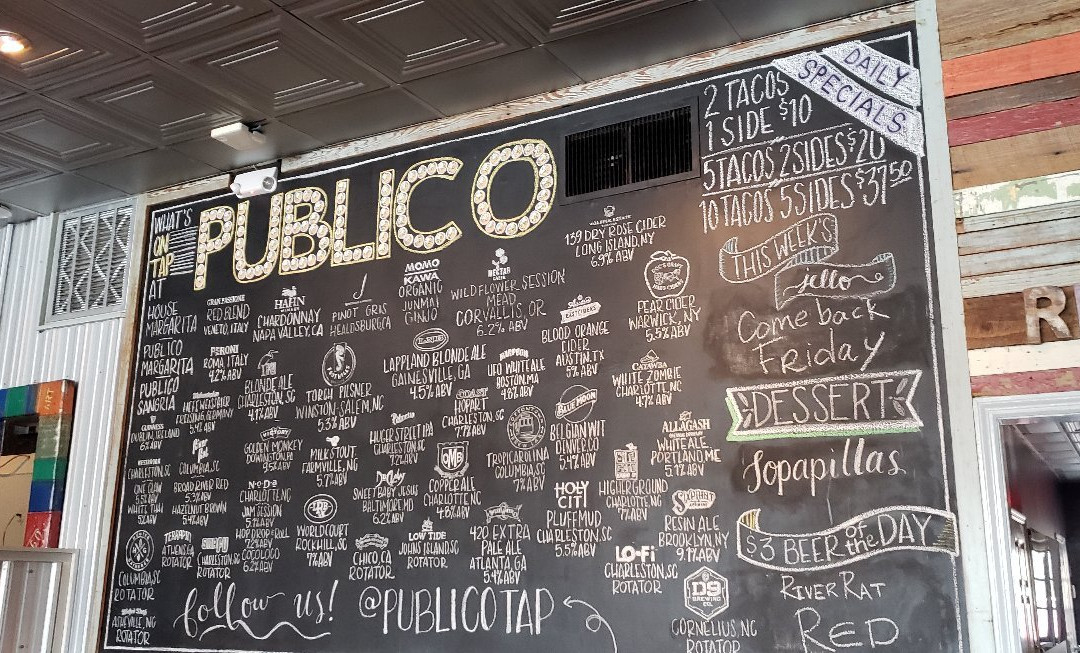 WHAT'S
ON
TAP
AT
PUBLICO
HOUSE
MARGARITA
PUBLICO
MARGARITA
PUBLICO
SANGRIA
GUINNESS
DUBLIN, IRELAND
CHARLESTON, SC
ONE CLAW
WHITE THAI
COLUMBIA, SC
ASHEVILLE, NC
ROTATOR
RED BLEND
VENETO, ITALY
PERONI
ROMA, ITALY
4.2% ABV
HEFEWEISSBIER
FREISING, GERMANY
5.4% ABV
COLUMBIA, SC
BROAD RIVER RED
5.3% ABV
HAZELNUT BROWN
5.4% ABV
TERRAPIN
ATHENS, GA
ROTATOR
CHARLESTON, SC
ROTATOR
HAHN
CHARDONNAY
NAPA VALLEY, CA
BLONDE ALE
CHARLESTON, SC
4.1% ABV
VICTORY
GOLDEN MONKEY
DOWNINGTOWN, PA
9.5% ABV
NoDa
CHARLOTTE, NC
JAM SESSION
5.1% ABV
HOP DROP N ROLL
7.2% ABV
COCO LOCO
6.2% ABV
J
PINOT GRIS
HEALDSBURG CA
TORCH PILSNER
WINSTON-SALEM, NC
5.3% ABV
MILK STOUT
FARMVILLE, NC
5.7% ABV
WORLD COURT
ROCKHILL, SC
7% ABV
MOMO
KAWA
ORGANIC
JUNMAI
GINJO
LAPPLAND BLONDE ALE
GAINESVILLE, GA
4.5% ABV
HUGER STREET IPA
CHARLESTON, SC
7.2% ABV
DuClaw
SWEET BABY JESUS
BALTIMORE MD
6.2% ABV
CHICO, CA
ROTATOR
LOW TIDE
JOHNS ISLAND SC
ROTATOR
NECTAR
CREEK
WILDFLOWER SESSION
MEAD
CORVALLYS, OR
6.2% ABV
HARPOON
UFO WHITE ALE
BOSTON, MA
4.8% ABV
COAST
HOP ART
CHARLESTON, SC
7.7% ABV
OMB
COPPER ALE
CHARLOTTE NC
4.8% ABV
420 EXTRA
PALE ALE
ATLANTA, GA
5.4% ABV
139 DRY ROSE CIDER
LONG ISLAND, NY
6.9% ABV
AUSTIN
EASTCIDERS
BLOOD ORANGE
CIDER
AUSTIN, TX
5% ABV
BLUE MOON
BELGIAN WIT
DENVER, CO
5.4% ABV
TROPICALIORINA
COLUMBIA, SC
7% ABV
HOLY
CITY
PLUFF MUD
CHARLESTON, SC
5.5% ABV
DOC'S DRAFT
HARD CIDER
PEAR CIDER
WARWICK, NY
5.5% ABV
CATAWBA
WHITE ZOMBIE
CHARLOTTE, NC
4.7% ABV
ALLAGASH
WHITE ALE
PORTLAND ME
5.1% ABV
HIGHER GROUND
CHARLOTTE, NC
7% ABV
SIXPOINT
RESIN ALE
BROOKLYN, NY
9.1% ABV
LO-FI
CHARLESTON, SC
ROTATOR
D9
BREWING
CO.
CORNELIUS, NC
ROTATOR
follow us!
@PUBLICOTAP
DAILY
SPECIALS
2 TACOS
1 SIDE $10
5 TACOS 2 SIDES $20
10 TACOS 5 SIDES $37.50
THIS WEEK'S
jello
Come back
Friday
DESSERT
Sopapillas
$3 BEER of the DAY
RIVER RAT
RED
R